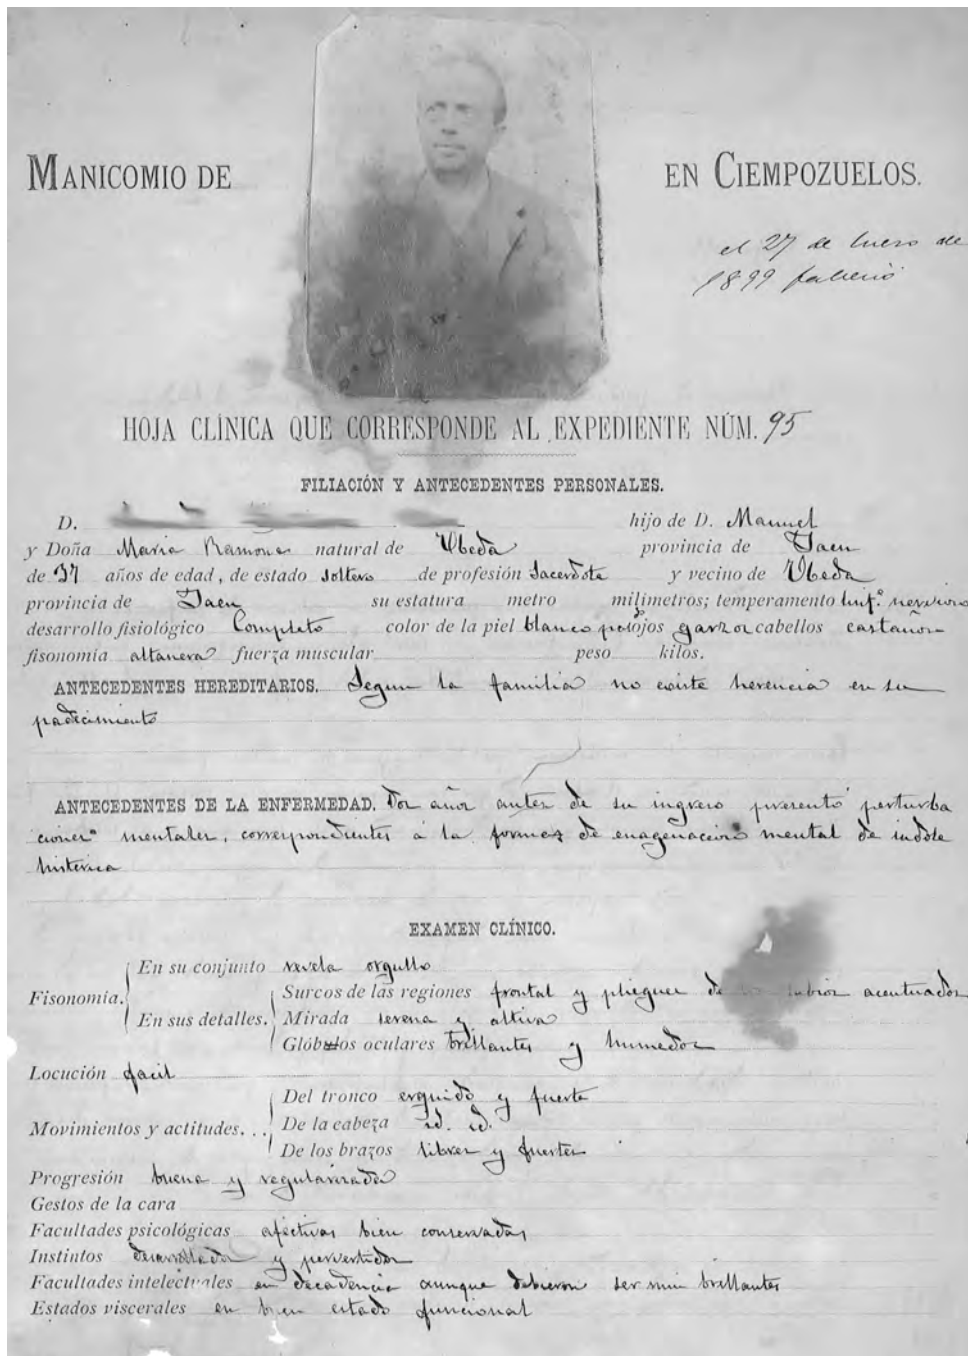 MANICOMIO DE EN CIEMPOZUELOS.
el 27 de Enero de
1899 falleció
HOJA CLÍNICA QUE CORRESPONDE AL EXPEDIENTE NÚM. 95
FILIACIÓN Y ANTECEDENTES PERSONALES.
D. hijo de D. Manuel
y Doña Maria Ramona natural de Ubeda provincia de Jaen
de 37 años de edad, de estado soltero de profesión Sacerdote y vecino de Ubeda
provincia de Jaen su estatura metro milimetros; temperamento linf.º nervioso
desarrollo fisiológico Completo color de la piel blanco ojos garzos cabellos castaños
fisonomía altanera fuerza muscular peso kilos.
ANTECEDENTES HEREDITARIOS. Segun la familia no existe herencia en su
padecimiento
ANTECEDENTES DE LA ENFERMEDAD. Dos años antes de su ingreso presentó perturba
ciones mentales, correspondientes á la formas de enagenacion mental de indole
histerica
EXAMEN CLÍNICO.
Fisonomía.
En su conjunto revela orgullo
En sus detalles.
Surcos de las regiones frontal y pliegues de los labios acentuados
Mirada serena y altiva
Glóbulos oculares brillantes y humedos
Locución facil
Movimientos y actitudes...
Del tronco erguido y fuerte
De la cabeza id. id.
De los brazos libres y fuertes
Progresión buena y regularizada
Gestos de la cara
Facultades psicológicas afectivas bien conservadas
Instintos desarrollados y pervertidos
Facultades intelectuales en decadencia aunque debieron ser mui brillantes
Estados viscerales en buen estado funcional